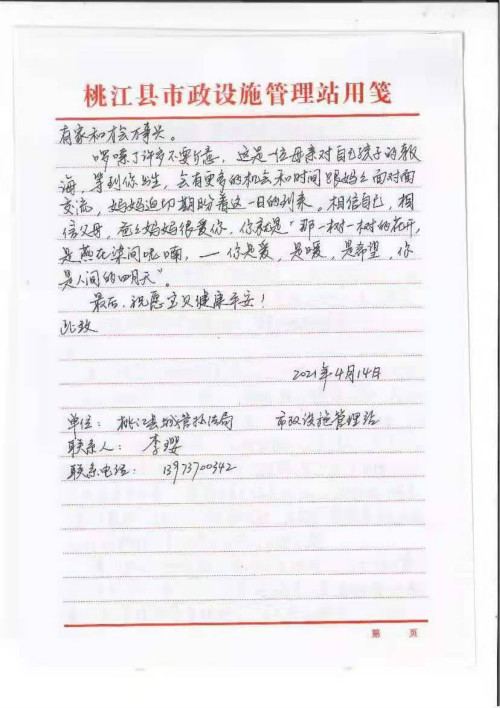 桃江县市政设施管理站用笺
有家和才会万事兴。
啰嗦了许多不要介意，这是一位母亲对自己孩子的教
诲，等到你出生，会有更多的机会和时间跟妈妈面对面
交流，妈妈迫切期盼着这一日的到来。相信自己，相
信父母，爸爸妈妈很爱你，你就是“那一树一树的花开，
是燕在梁间呢喃，— 你是爱，是暖，是希望，你
是人间的四月天”。
最后，祝愿宝贝健康平安！
此致
2021年4月14日
单位： 桃江县城管执法局 市政设施管理站
联系人： 李璎
联系电话： 13973700342
第 页